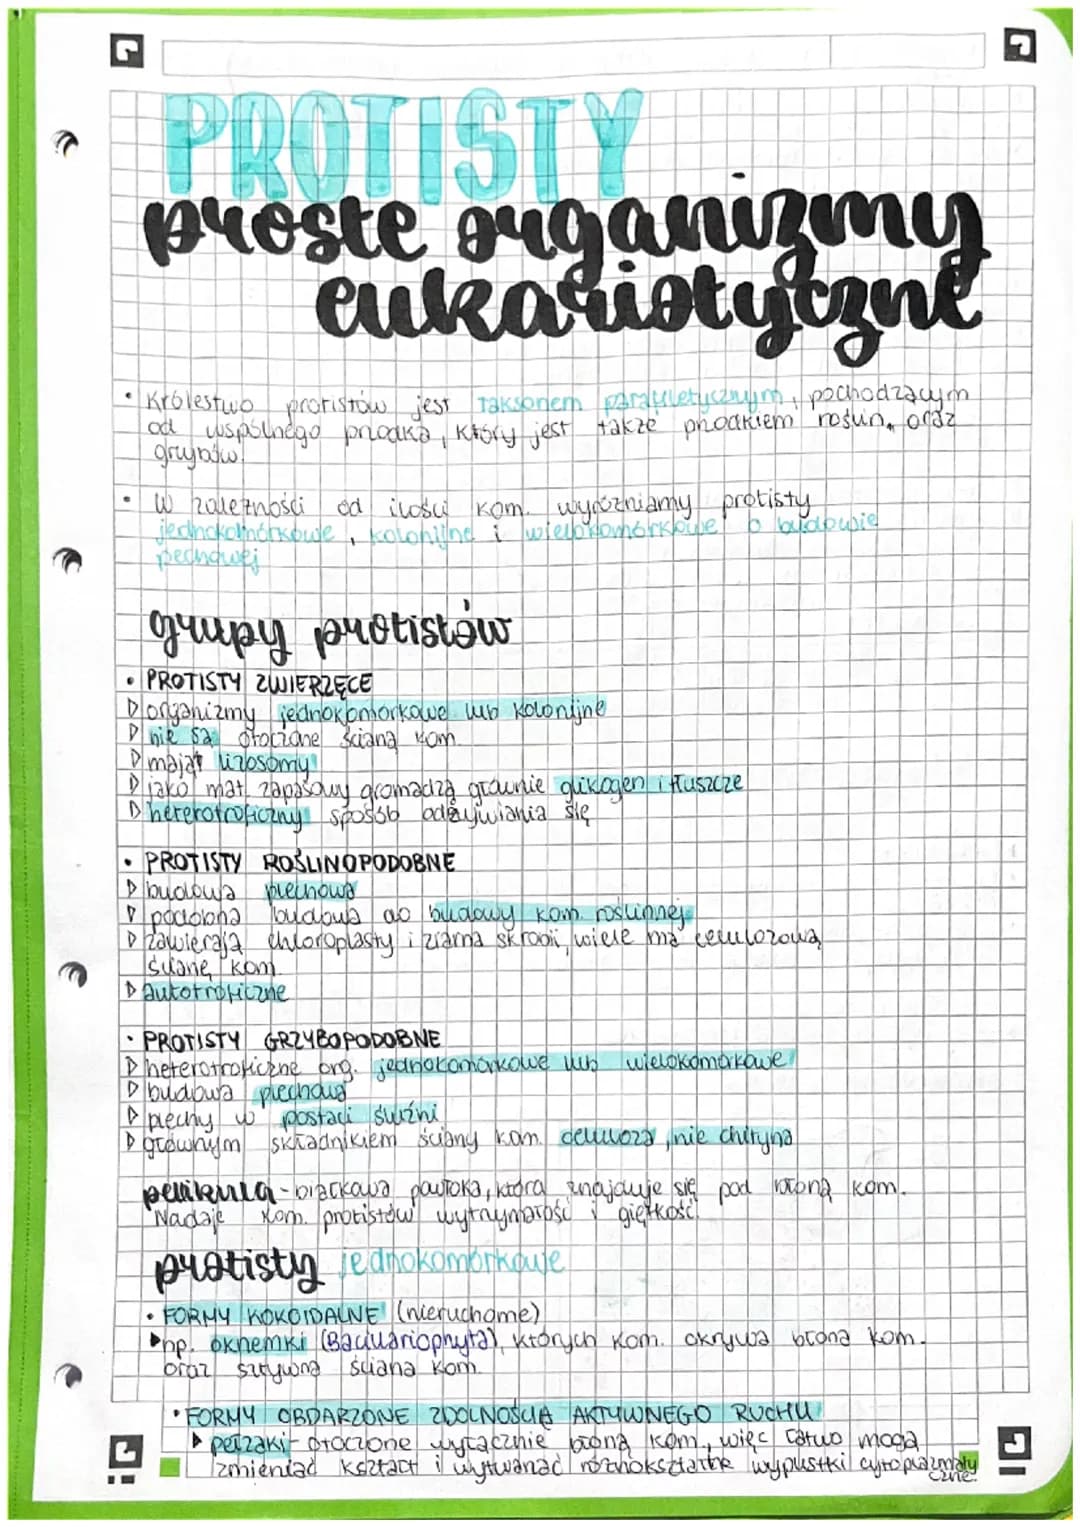 PROTISTY
proste organizmy
eukariotyczne
• Królestwo protistów jest taksonem parafiletycznym, pochodzącym
od wspólnego przodka, który jest także przodkiem roślin, oraz
grzybów.
• W zależności od ilości kom. wyróżniamy protisty
jednokomórkowe, kolonijne i wielokomórkowe o budowie
plechowej
grupy protistów
• PROTISTY ZWIERZĘCE
▷ organizmy jednokomórkowe lub kolonijne
▷ nie są otoczone ścianą kom.
▷ mają lizosomy
▷ jako mat. zapasowy gromadzą głównie glikogen i tłuszcze
▷ heterotroficzny sposób odżywiania się
• PROTISTY ROŚLINOPODOBNE
▷ budowa plechowa
▷ podobna budowa do budowy kom. roślinnej
▷ zawierają chloroplasty i ziarna skrobi, wiele ma celulozową
ścianę kom.
▷ autotroficzne
• PROTISTY GRZYBOPODOBNE
▷ heterotroficzne org. jednokomórkowe lub wielokomórkowe
▷ budowa plechowa
▷ plechy w postaci śluźni
▷ głównym składnikiem ściany kom. celuloza, nie chityna
pelikula - białkowa powłoka, która znajduje się pod błoną kom.
Nadaje kom. protistów wytrzymałość i giętkość.
protisty jednokomórkowe
• FORMY KOKOIDALNE (nieruchome)
▶ np. okrzemki (Bacillariophyta), których kom. okrywa błona kom.
oraz sztywna ściana kom.
• FORMY OBDARZONE ZDOLNOŚCIĄ AKTYWNEGO RUCHU
▶ pełzaki - otoczone wyłącznie błoną kom., więc łatwo mogą
zmieniać kształt i wytwarzać różnokształtne wypustki cytoplazmaty
czne.